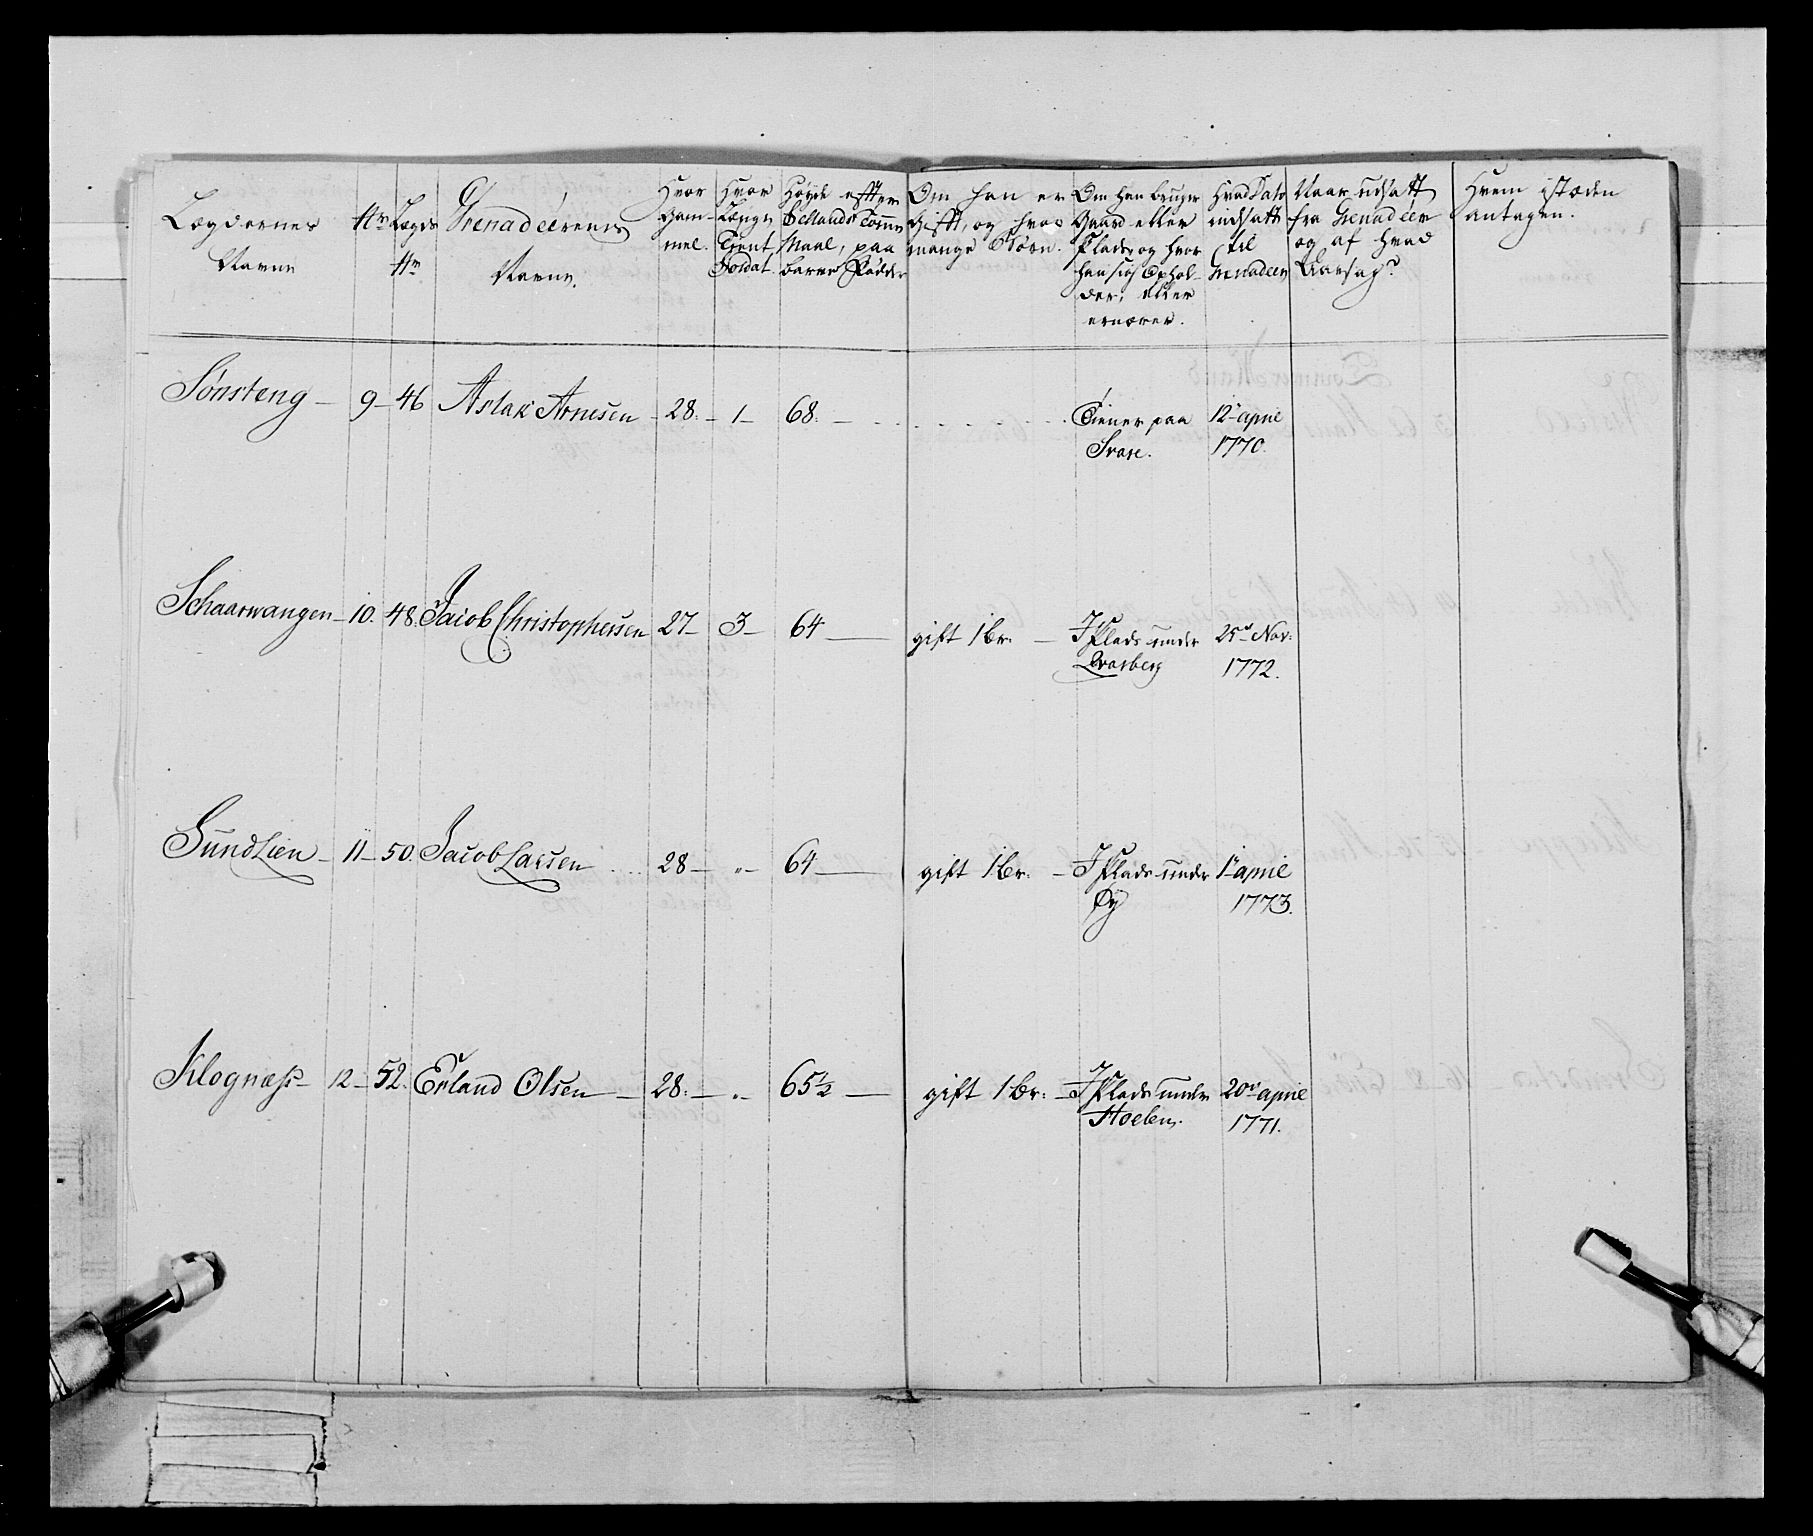 Lægdernes Navne
No
Lægds No
Grenadeerens Navne.
Hvor Gammel.
Hvor Længe Tient Soldat.
Høyde efter Sellands Tomme Maal, paa barre Fødder
Om han er Gifft, og hvor mange Børn.
Om han bruger Gaard eller Plads, og hvor han sig Opholder, eller ernærer.
Hvad Dato udsatt til Grenadeer
Naar udsatt fra Grenadeer og af hvad Aarsag?
Hvem istæden antagen.
Sønsteng — 9 — 46 Aslak Arnesen — 28. — 1 — 68. — Tiener paa 12te april
Svare. 1770.
Schaarwangen — 10. 48. Jacob Christophersen 27 — 3 — 64 — gift 1 br. — J Plads under 25de Nov:
Qvasberg 1772.
Sundlien — 11 — 50. Jacob Larsen 28 — „ — 64 — gift 1 br. — J Plads under 1te april
Øy 1773.
Klognæss — 12 — 52. Erland Olsen — 28. — „ — 65½ — gift 1 br. — J Plads under 20de april
Hoelen. 1771.